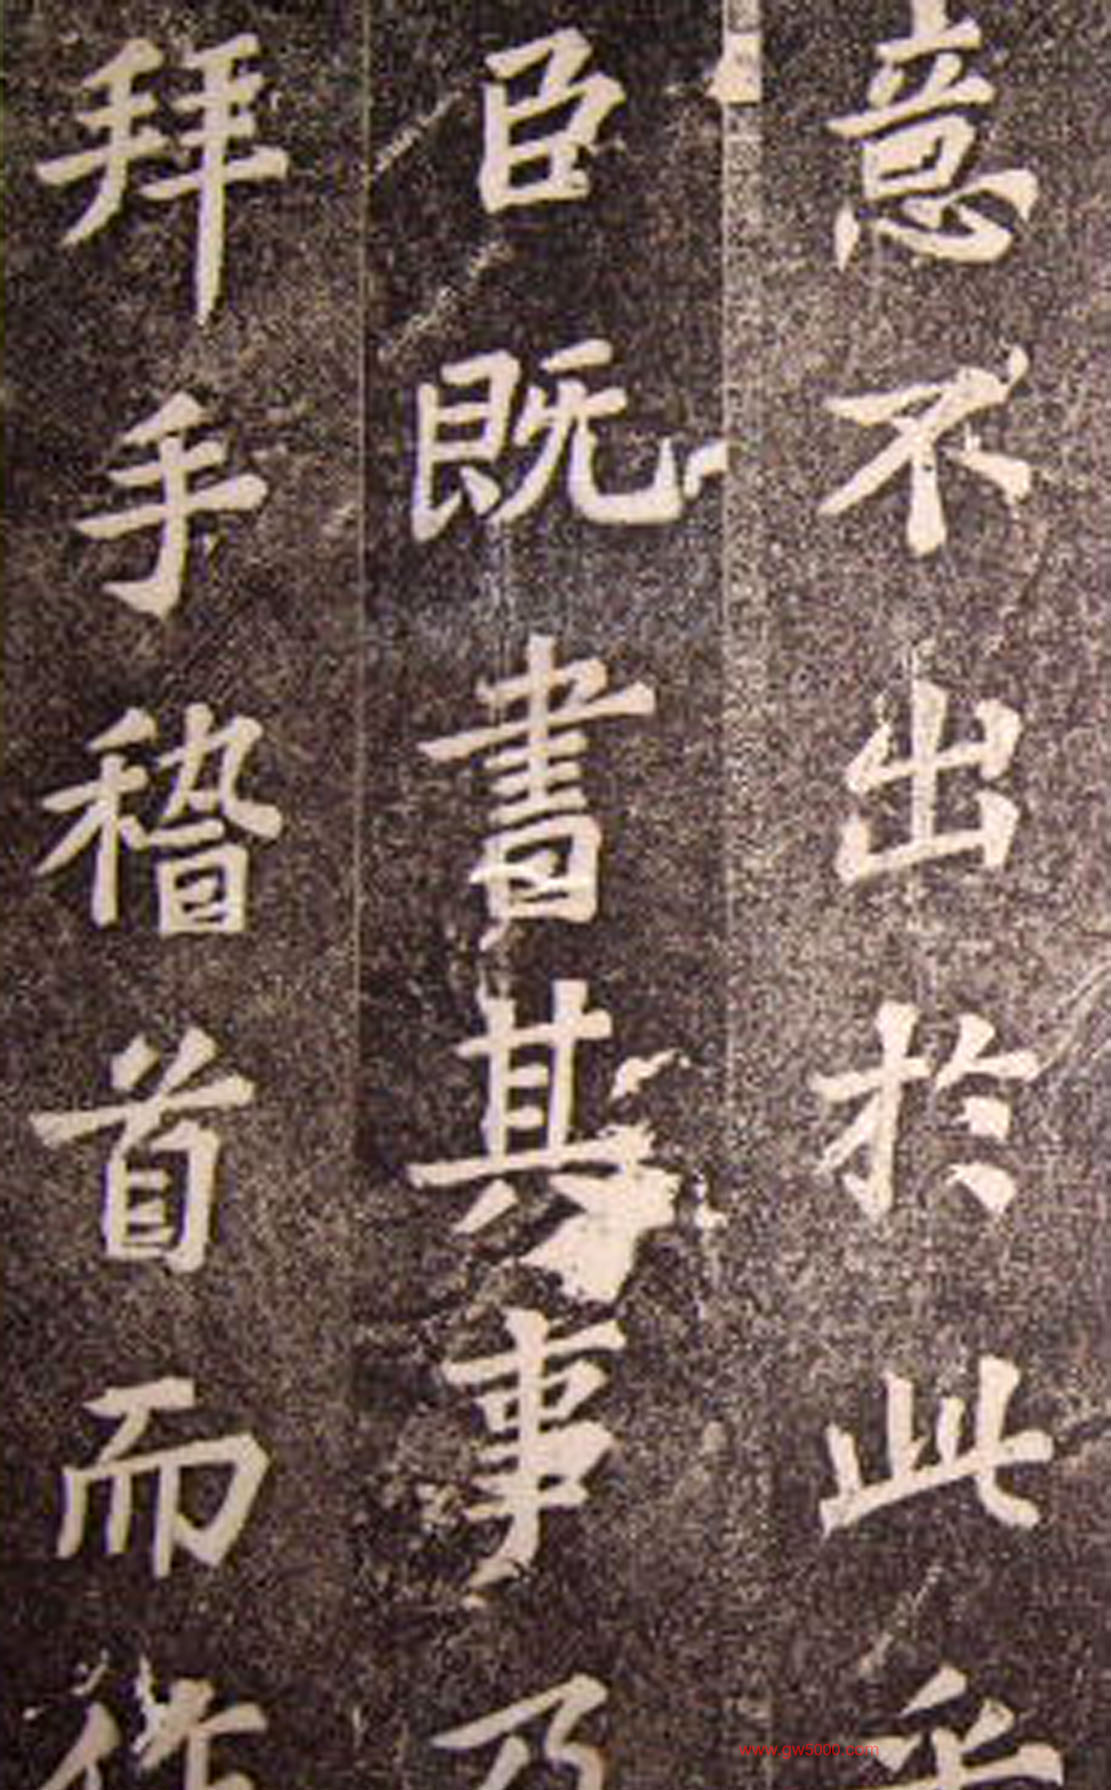 意不出於此乎
臣既書其事乃
拜手稽首而作
www.gw5000.com